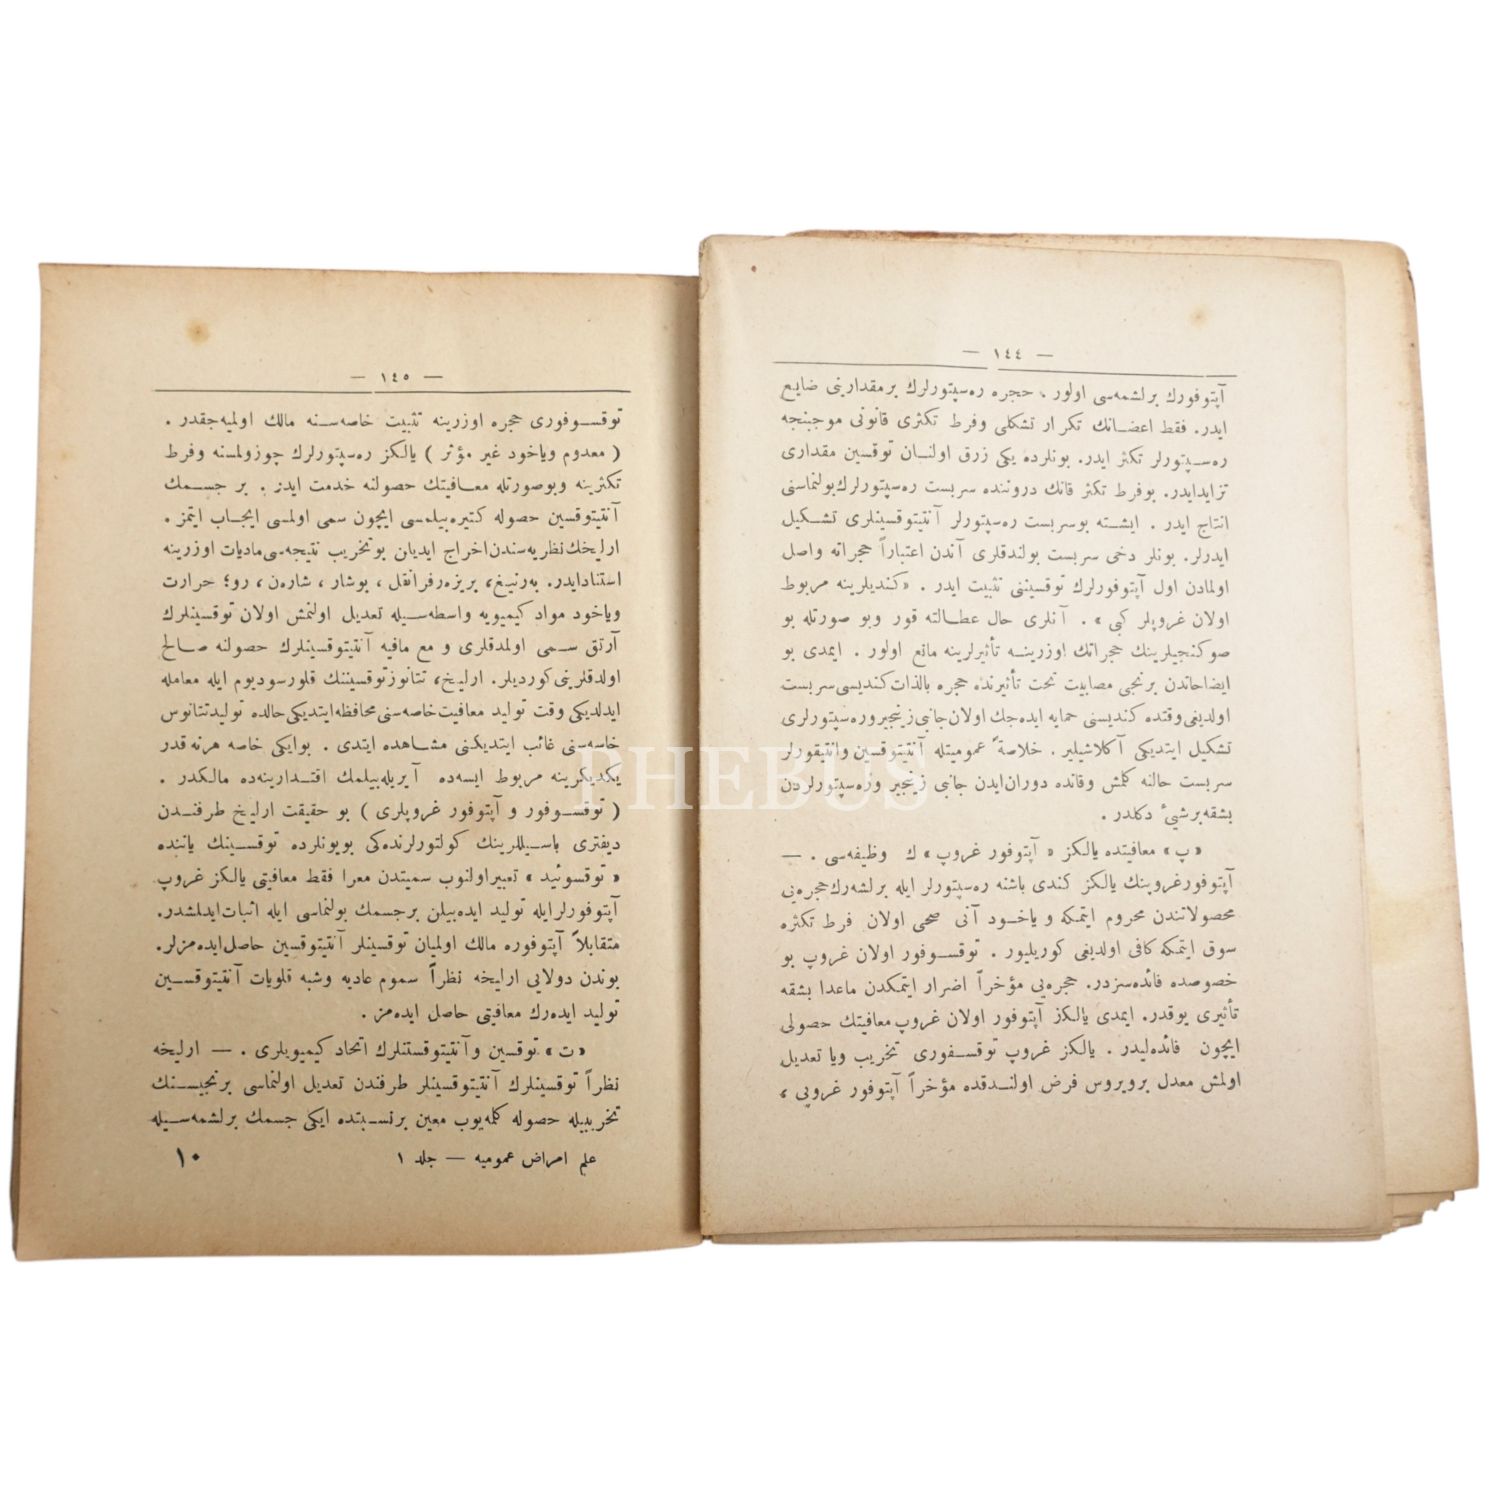 — ١٤٤ —
آپتوفورك برلشمه‌سى اولور . حجره ره‌سپتورلرك بر مقدارينى ضايع
ايدر . فقط اعضانك تكرار تشكلى وفرط تكثرى قانونى موجبنجه
ره‌سپتورلر تكثر ايدر . بونلرده يكى زرق اولنان توقسين مقدارى
تزايدايدر . بوفرط تكثر قانك دروننده سربست ره‌سپتورلرك بولنماسنى
انتاج ايدر . ايشته بوسربست ره‌سپتورلر آنتيتوقسينلرى تشكيل
ايدرلر . بونلر دخى سربست بولندقلرى آندن اعتباراً حجراته واصل
اولمادن اول آپتوفورلرك توقسيننى تثبيت ايدر . «كنديلرينه مربوط
اولان غروپلر كبى» . آنلرى حال عطالته قور وبو صورتله بو
صوكنجيلرينك حجراتك اوزرينه تأثيرلرينه مانع اولور . ايمدى بو
ايضاحاتدن برنجى مصابيت تحت تأثيرنده حجره بالذات كنديسى سربست
اولديغى وقتده كنديسنى حمايه ايده‌جك اولان جانبى زينجيروره‌سپتورلرى
تشكيل ايتديكى آكلاشيلير . خلاصةً عموميتله آنتيتوقسين وانتيقورلر
سربست حالنه كلمش وقانده دوران‌ايدن جانبى زينجير وره‌سپتورلردن
بشقه برشئ دكلدر .
«پ» معافيتده يالكز «آپتوفور غروپ» ك وظيفه‌سى . —
آپتوفورغروپنك يالكز كندى باشنه ره‌سپتورلر ايله برلشه‌رك حجره‌يى
محصولاتندن محروم ايتمكه و ياخود آنى صحى اولان فرط تكثره
سوق ايتمكه كافى اولديغى كوريليور . توقسوفور اولان غروپ بو
خصوصده فائده‌سزدر . حجره‌يى مؤخراً اضرار ايتمكدن ماعدا بشقه
تأثيرى يوقدر . ايمدى يالكز آپتوفور اولان غروپ معافيتك حصولى
ايچون فائده‌ليدر . يالكز غروپ توقسفورى تخريب ويا تعديل
اولمش معدل برويروس فرض اولندقده مؤخراً آپتوفور غروپى ،
— ١٤٥ —
توقسوفورى حجره اوزرينه تثبيت خاصه‌سنه مالك اولميه‌جقدر .
( معدوم وياخود غير مؤثر ) يالكز ره‌سپتورلرك چوزولمسنه وفرط
تكثرينه وبوصورتله معافيتك حصولنه خدمت ايدر . بر جسمك
آنتيتوقسين حصوله كتيره‌بيلمسى ايچون سمى اولمسى ايجاب ايتمز .
ارليخك نظريه‌سندن اخراج ايديان بوتخريب نتيجه‌سى ماديات اوزرينه
استنادايدر . به‌رنيغ ، بريزه‌رفرانقل ، بوشار ، شاره‌ن ، رو ؛ حرارت
وياخود مواد كيميويه واسطه‌سيله تعديل اولنمش اولان توقسينلرك
آرتق سمى اولمدقلرى و مع مافيه آنتيتوقسينلرك حصولنه صالح
اولدقلرينى كورديلر . ارليخ ، تتانوزتوقسيننك قلورسوديوم ايله معامله
ايدلديكى وقت توليد معافيت خاصه‌سنى محافظه‌ايتديكى حالده توليدتتانوس
خاسه‌سنى غائب ايتديكنى مشاهده ايتدى . بوايكى خاصه هرنه‌قدر
يكديكرينه مربوط ايسه‌ده آيريله‌بيلمك اقتدارينه‌ده مالكدر .
( توقسوفور و آپتوفور غروپلرى ) بو حقيقت ارليخ طرفندن
ديفترى باسيللرينك كولتورلرنده‌كى بويونلرده توقسينك ياننده
«توقسوئيد» تعبيراولنوب سميتدن معرا فقط معافيتى يالكز غروپ
آپتوفورلرايله توليد ايده‌بيلن برجسمك بولنماسى ايله اثبات‌ايدلشدر .
متقابلاً آپتوفوره مالك اولميان توقسينلر آنتيتوقسين حاصل‌ايده‌مزلر .
بوندن دولايى ارليخه نظراً سموم عاديه وشبه قلويات آنتيتوقسين
توليد ايده‌رك معافيتى حاصل ايده‌مز .
«ت» توقسين وآنتيتوقسنلرك اتحاد كيميويلرى . — ارليخه
نظراً توقسينلرك آنتيتوقسينلر طرفندن تعديل اولنماسى برنجيسنك
تخريبيله حصوله كلمه‌يوب معين برنسبتده ايكى جسمك برلشمه‌سيله
علم امراض عموميه — جلد ١ ١٠
PHEBUS